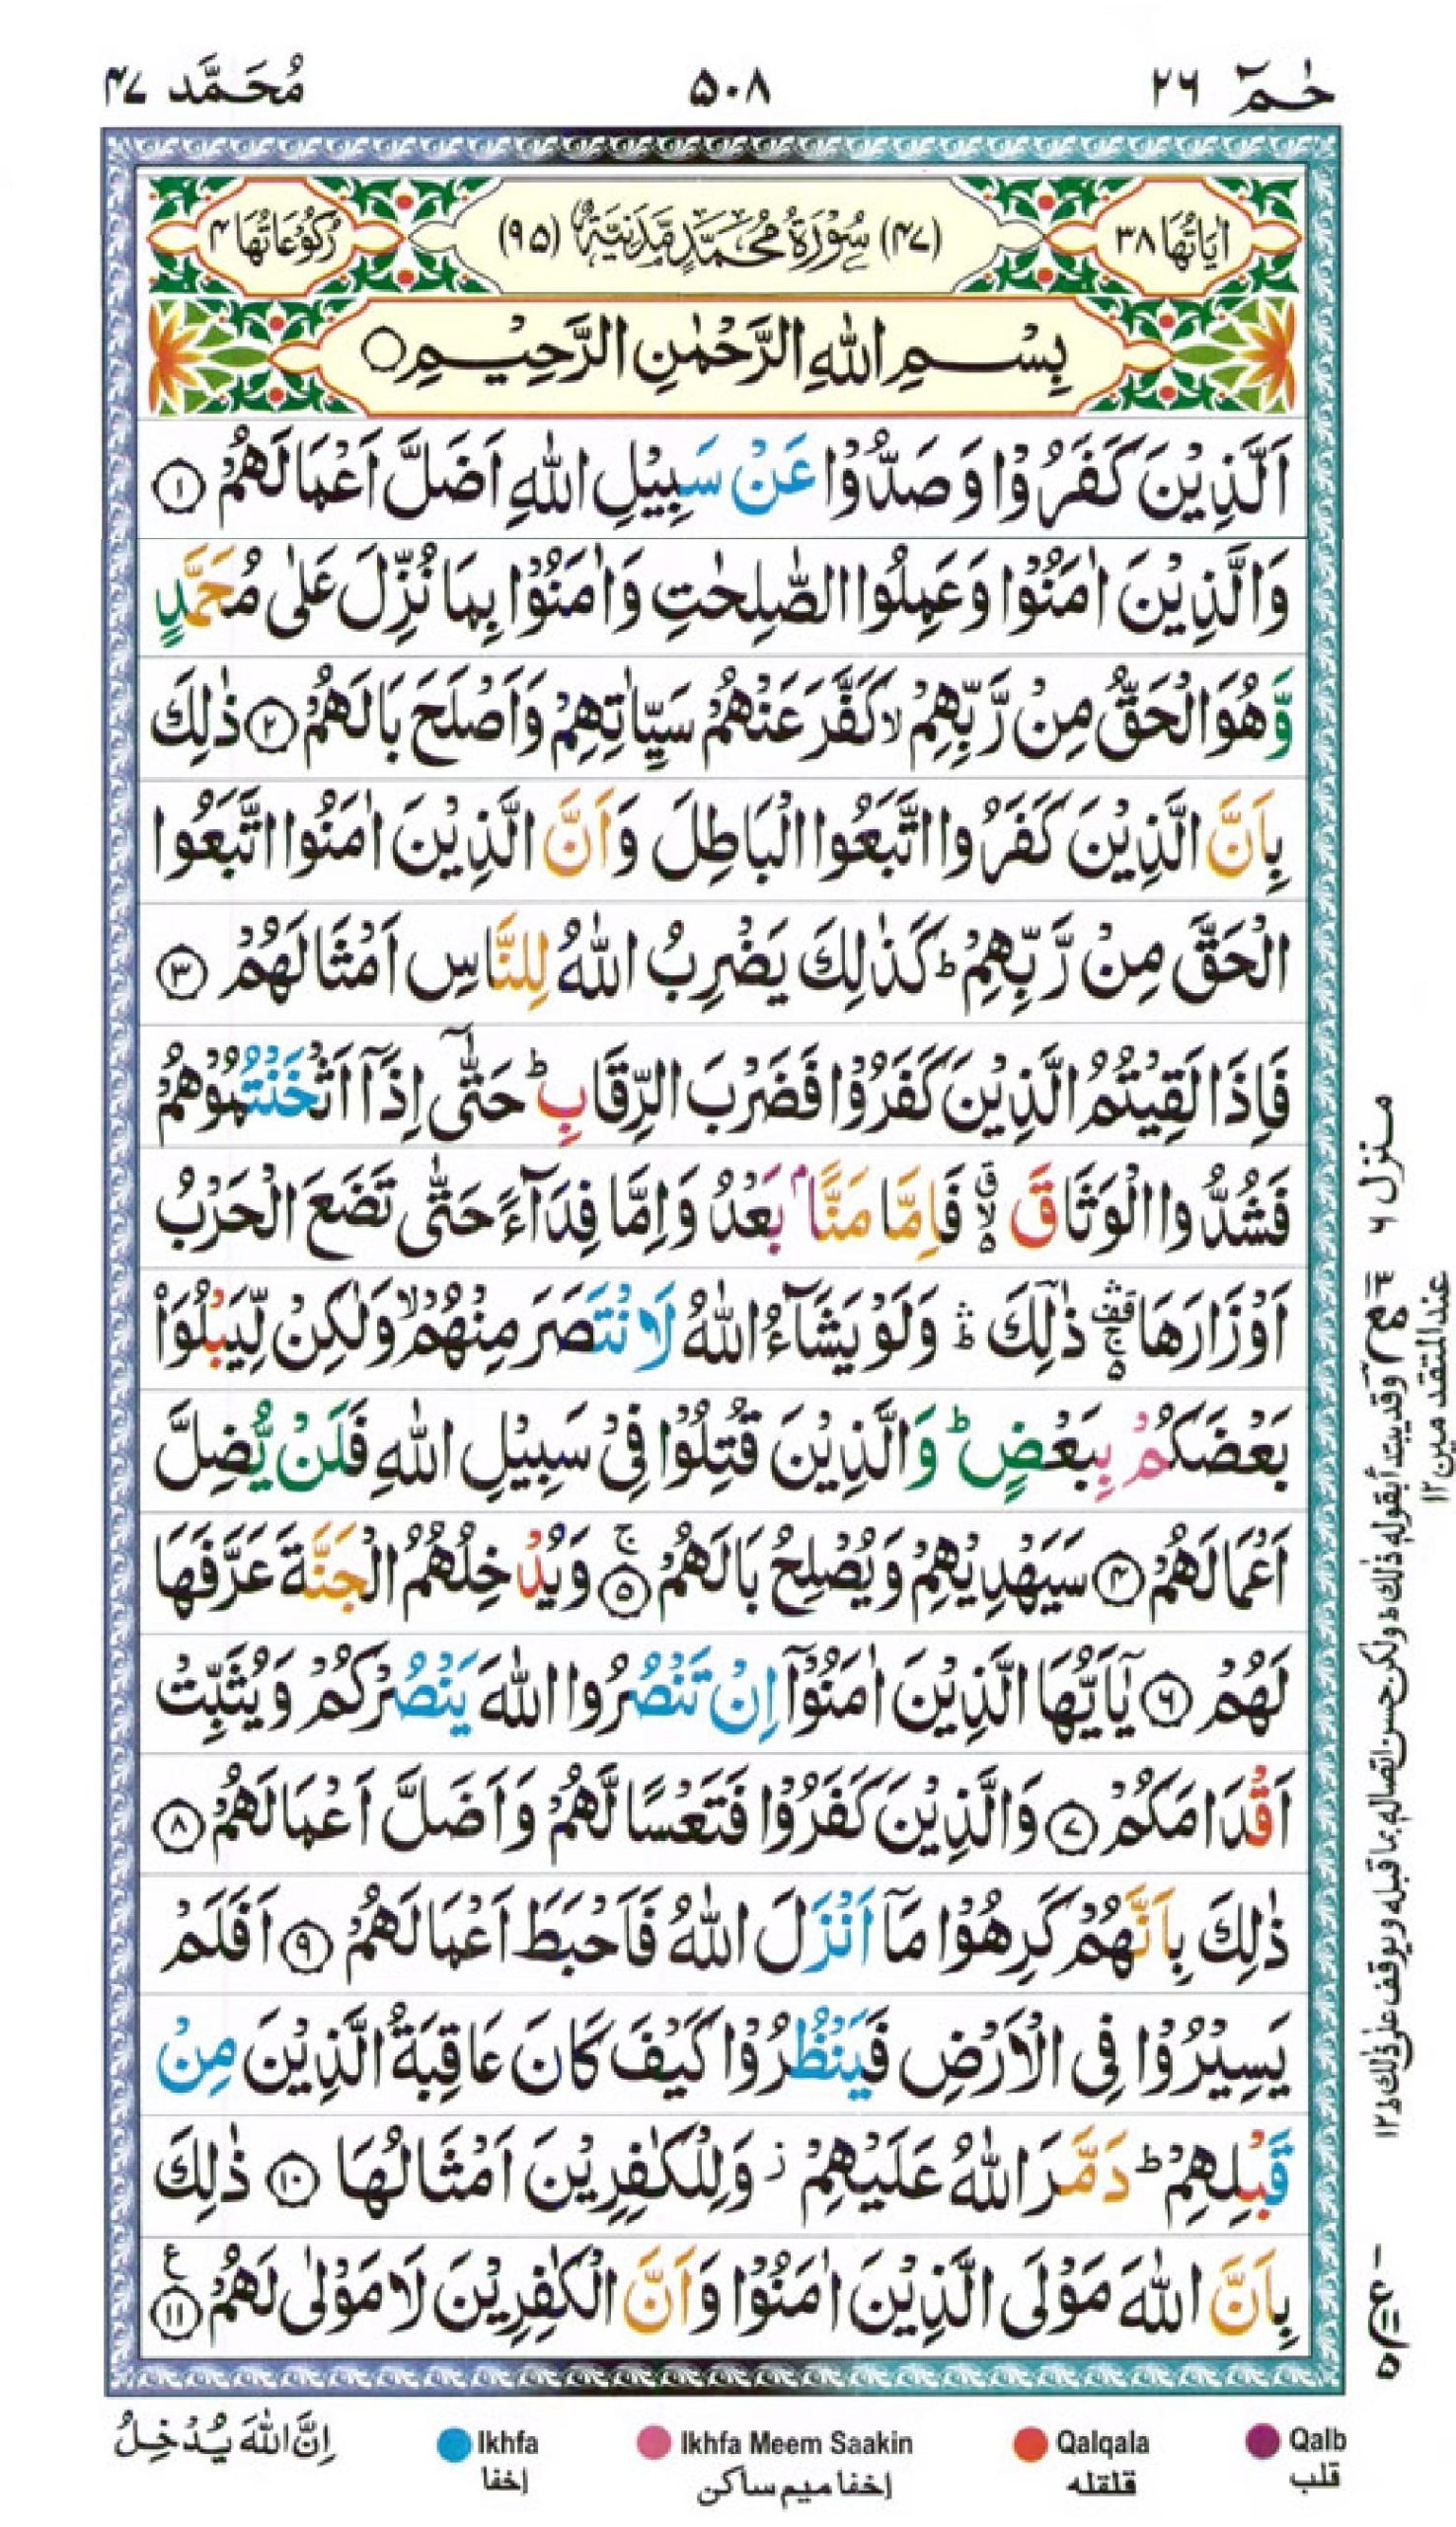 حٰمٓ ٢٦
٥٠٨
مُحَمَّد ٤٧
اٰيَاتُهَا ٣٨
(٤٧) سُوْرَةُ مُحَمَّدٍ مَّدَنِيَّةٌ (٩٥)
رُكُوْعَاتُهَا ٤
بِسْمِ اللّٰهِ الرَّحْمٰنِ الرَّحِيْمِ ۝
اَلَّذِيْنَ كَفَرُوْا وَصَدُّوْا عَنْ سَبِيْلِ اللّٰهِ اَضَلَّ اَعْمَالَهُمْ ۝١
وَالَّذِيْنَ اٰمَنُوْا وَعَمِلُوا الصّٰلِحٰتِ وَاٰمَنُوْا بِمَا نُزِّلَ عَلٰى مُحَمَّدٍ
وَّهُوَ الْحَقُّ مِنْ رَّبِّهِمْ ۙ كَفَّرَ عَنْهُمْ سَيِّاٰتِهِمْ وَاَصْلَحَ بَالَهُمْ ۝٢ ذٰلِكَ
بِاَنَّ الَّذِيْنَ كَفَرُوا اتَّبَعُوا الْبَاطِلَ وَاَنَّ الَّذِيْنَ اٰمَنُوا اتَّبَعُوا
الْحَقَّ مِنْ رَّبِّهِمْ ؕ كَذٰلِكَ يَضْرِبُ اللّٰهُ لِلنَّاسِ اَمْثَالَهُمْ ۝٣
فَاِذَا لَقِيْتُمُ الَّذِيْنَ كَفَرُوْا فَضَرْبَ الرِّقَابِ ؕ حَتّٰۤى اِذَاۤ اَثْخَنْتُمُوْهُمْ
فَشُدُّوا الْوَثَاقَ ۙ فَاِمَّا مَنًّۢا بَعْدُ وَاِمَّا فِدَآءً حَتّٰى تَضَعَ الْحَرْبُ
اَوْزَارَهَا ۛۚ ذٰلِكَ ؕۛ وَلَوْ يَشَآءُ اللّٰهُ لَانْتَصَرَ مِنْهُمْ ۙ وَلٰكِنْ لِّيَبْلُوَا۟
بَعْضَكُمْ بِبَعْضٍ ؕ وَالَّذِيْنَ قُتِلُوْا فِىْ سَبِيْلِ اللّٰهِ فَلَنْ يُّضِلَّ
اَعْمَالَهُمْ ۝٤ سَيَهْدِيْهِمْ وَيُصْلِحُ بَالَهُمْ ۚ۝٥ وَيُدْخِلُهُمُ الْجَنَّةَ عَرَّفَهَا
لَهُمْ ۝٦ يٰۤاَيُّهَا الَّذِيْنَ اٰمَنُوْۤا اِنْ تَنْصُرُوا اللّٰهَ يَنْصُرْكُمْ وَيُثَبِّتْ
اَقْدَامَكُمْ ۝٧ وَالَّذِيْنَ كَفَرُوْا فَتَعْسًا لَّهُمْ وَاَضَلَّ اَعْمَالَهُمْ ۝٨
ذٰلِكَ بِاَنَّهُمْ كَرِهُوْا مَاۤ اَنْزَلَ اللّٰهُ فَاَحْبَطَ اَعْمَالَهُمْ ۝٩ اَفَلَمْ
يَسِيْرُوْا فِى الْاَرْضِ فَيَنْظُرُوْا كَيْفَ كَانَ عَاقِبَةُ الَّذِيْنَ مِنْ
قَبْلِهِمْ ؕ دَمَّرَ اللّٰهُ عَلَيْهِمْ ز وَلِلْكٰفِرِيْنَ اَمْثَالُهَا ۝١٠ ذٰلِكَ
بِاَنَّ اللّٰهَ مَوْلَى الَّذِيْنَ اٰمَنُوْا وَاَنَّ الْكٰفِرِيْنَ لَا مَوْلٰى لَهُمْ ۝١١ ع
منزل ٦
وقد يبتدأ بقوله ذٰلك ط ولكن حسن اتصاله بما قبله ويوقف على ذٰلك ط ١٢
اِنَّ اللّٰهَ يُدْخِلُ
Ikhfa
إخفا
Ikhfa Meem Saakin
إخفا ميم ساكن
Qalqala
قلقله
Qalb
قلب